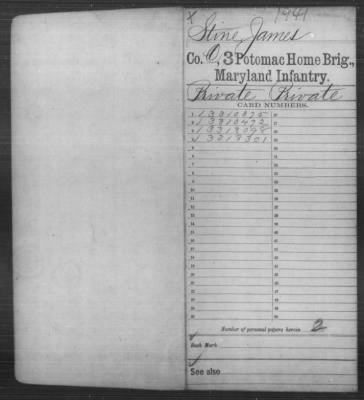 X 1941
Stine, James
Co. C, 3 Potomac Home Brig.,
Maryland Infantry.
Private Private
CARD NUMBERS.
1 13310375
2 13310472
3 13313098
4 13313301
Number of personal papers herein 2
Book Mark
See also